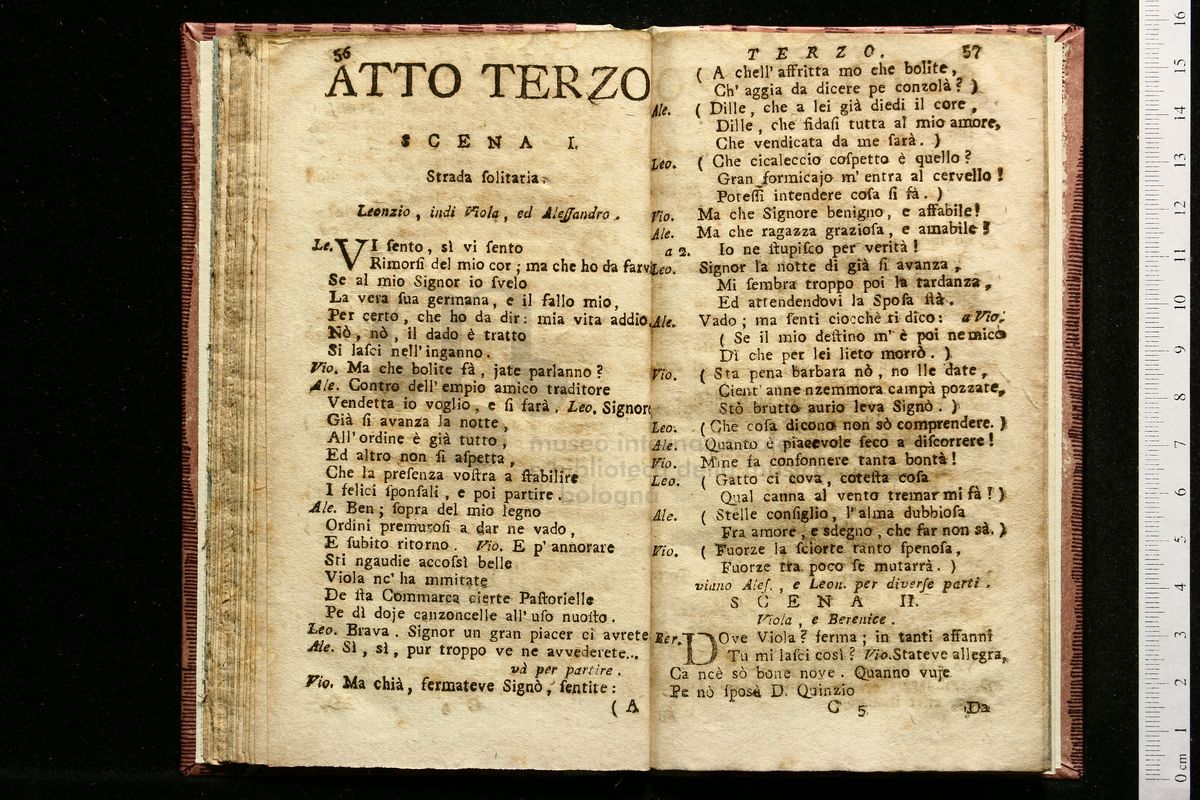 56
ATTO TERZO
SCENA I.
Strada ſolitaria.
Leonzio, indi Viola, ed Aleſſandro.
Le. VI ſento, sì vi ſento
Rimorſi del mio cor; ma che ho da far
Se al mio Signor io ſvelo
La vera ſua germana, e il fallo mio,
Per certo, che ho da dir: mia vita addio.
Nò, nò, il dado è tratto
Si laſci nell' inganno.
Vio. Ma che bolite fà, jate parlanno?
Ale. Contro dell' empio amico traditore
Vendetta io voglio, e ſi farà. Leo. Signor
Già ſi avanza la notte,
All' ordine è già tutto,
Ed altro non ſi aſpetta,
Che la preſenza voſtra a ſtabilire
I felici ſponſali, e poi partire.
Ale. Ben; ſopra del mio legno
Ordini premuroſi a dar ne vado,
E ſubito ritorno. Vio. E p' annorare
Sti ngaudie accoſsì belle
Viola nc' ha mmitate
De ſta Commarca cierte Paſtorielle
Pe dì doje canzoncelle all' uſo nuoſto.
Leo. Brava. Signor un gran piacer ci avrete
Ale. Sì, sì, pur troppo ve ne avvederete...
và per partire.
Vio. Ma chià, fermateve Signò, ſentite:
( A
TERZO. 57
( A chell' affritta mo che bolite,
Ch' aggia da dicere pe conzolà? )
Ale. ( Dille, che a lei già diedi il core,
Dille, che fidaſi tutta al mio amore,
Che vendicata da me ſarà. )
Leo. ( Che cicaleccio coſpetto è quello?
Gran formicajo m' entra al cervello!
Poteſſi intendere coſa ſi fà. )
Vio. Ma che Signore benigno, e affabile!
Ale. Ma che ragazza grazioſa, e amabile!
a 2. Io ne ſtupiſco per verità!
Leo. Signor la notte di già ſi avanza,
Mi ſembra troppo poi la tardanza,
Ed attendendovi la Spoſa ſtà.
Ale. Vado; ma ſenti ciocchè ti dico: a Vio.
( Se il mio deſtino m' è poi nemico
Dì che per lei lieto morrò. )
Vio. ( Sta pena barbara nò, no lle date,
Cient' anne nzemmora campà pozzate,
Stò brutto aurio leva Signò. )
Leo. ( Che coſa dicono non sò comprendere. )
Ale. Quanto è piacevole ſeco a diſcorrere!
Vio. Mme fa conſonnere tanta bontà!
Leo. ( Gatto ci cova, coteſta coſa
Qual canna al vento tremar mi fà! )
Ale. ( Stelle conſiglio, l' alma dubbioſa
Fra amore, e sdegno, che far non sà. )
Vio. ( Fuorze la ſciorte tanto ſpenoſa,
Fuorze tra poco ſe mutarrà. )
viano Aleſ., e Leon. per diverſe parti.
SCENA II.
Viola, e Berenice.
Ber. DOve Viola? ferma; in tanti affanni
Tu mi laſci così? Vio. Stateve allegra,
Ca ncè sò bone nove. Quanno vuje
Pe nò ſposà D. Quinzio
C 5 Da